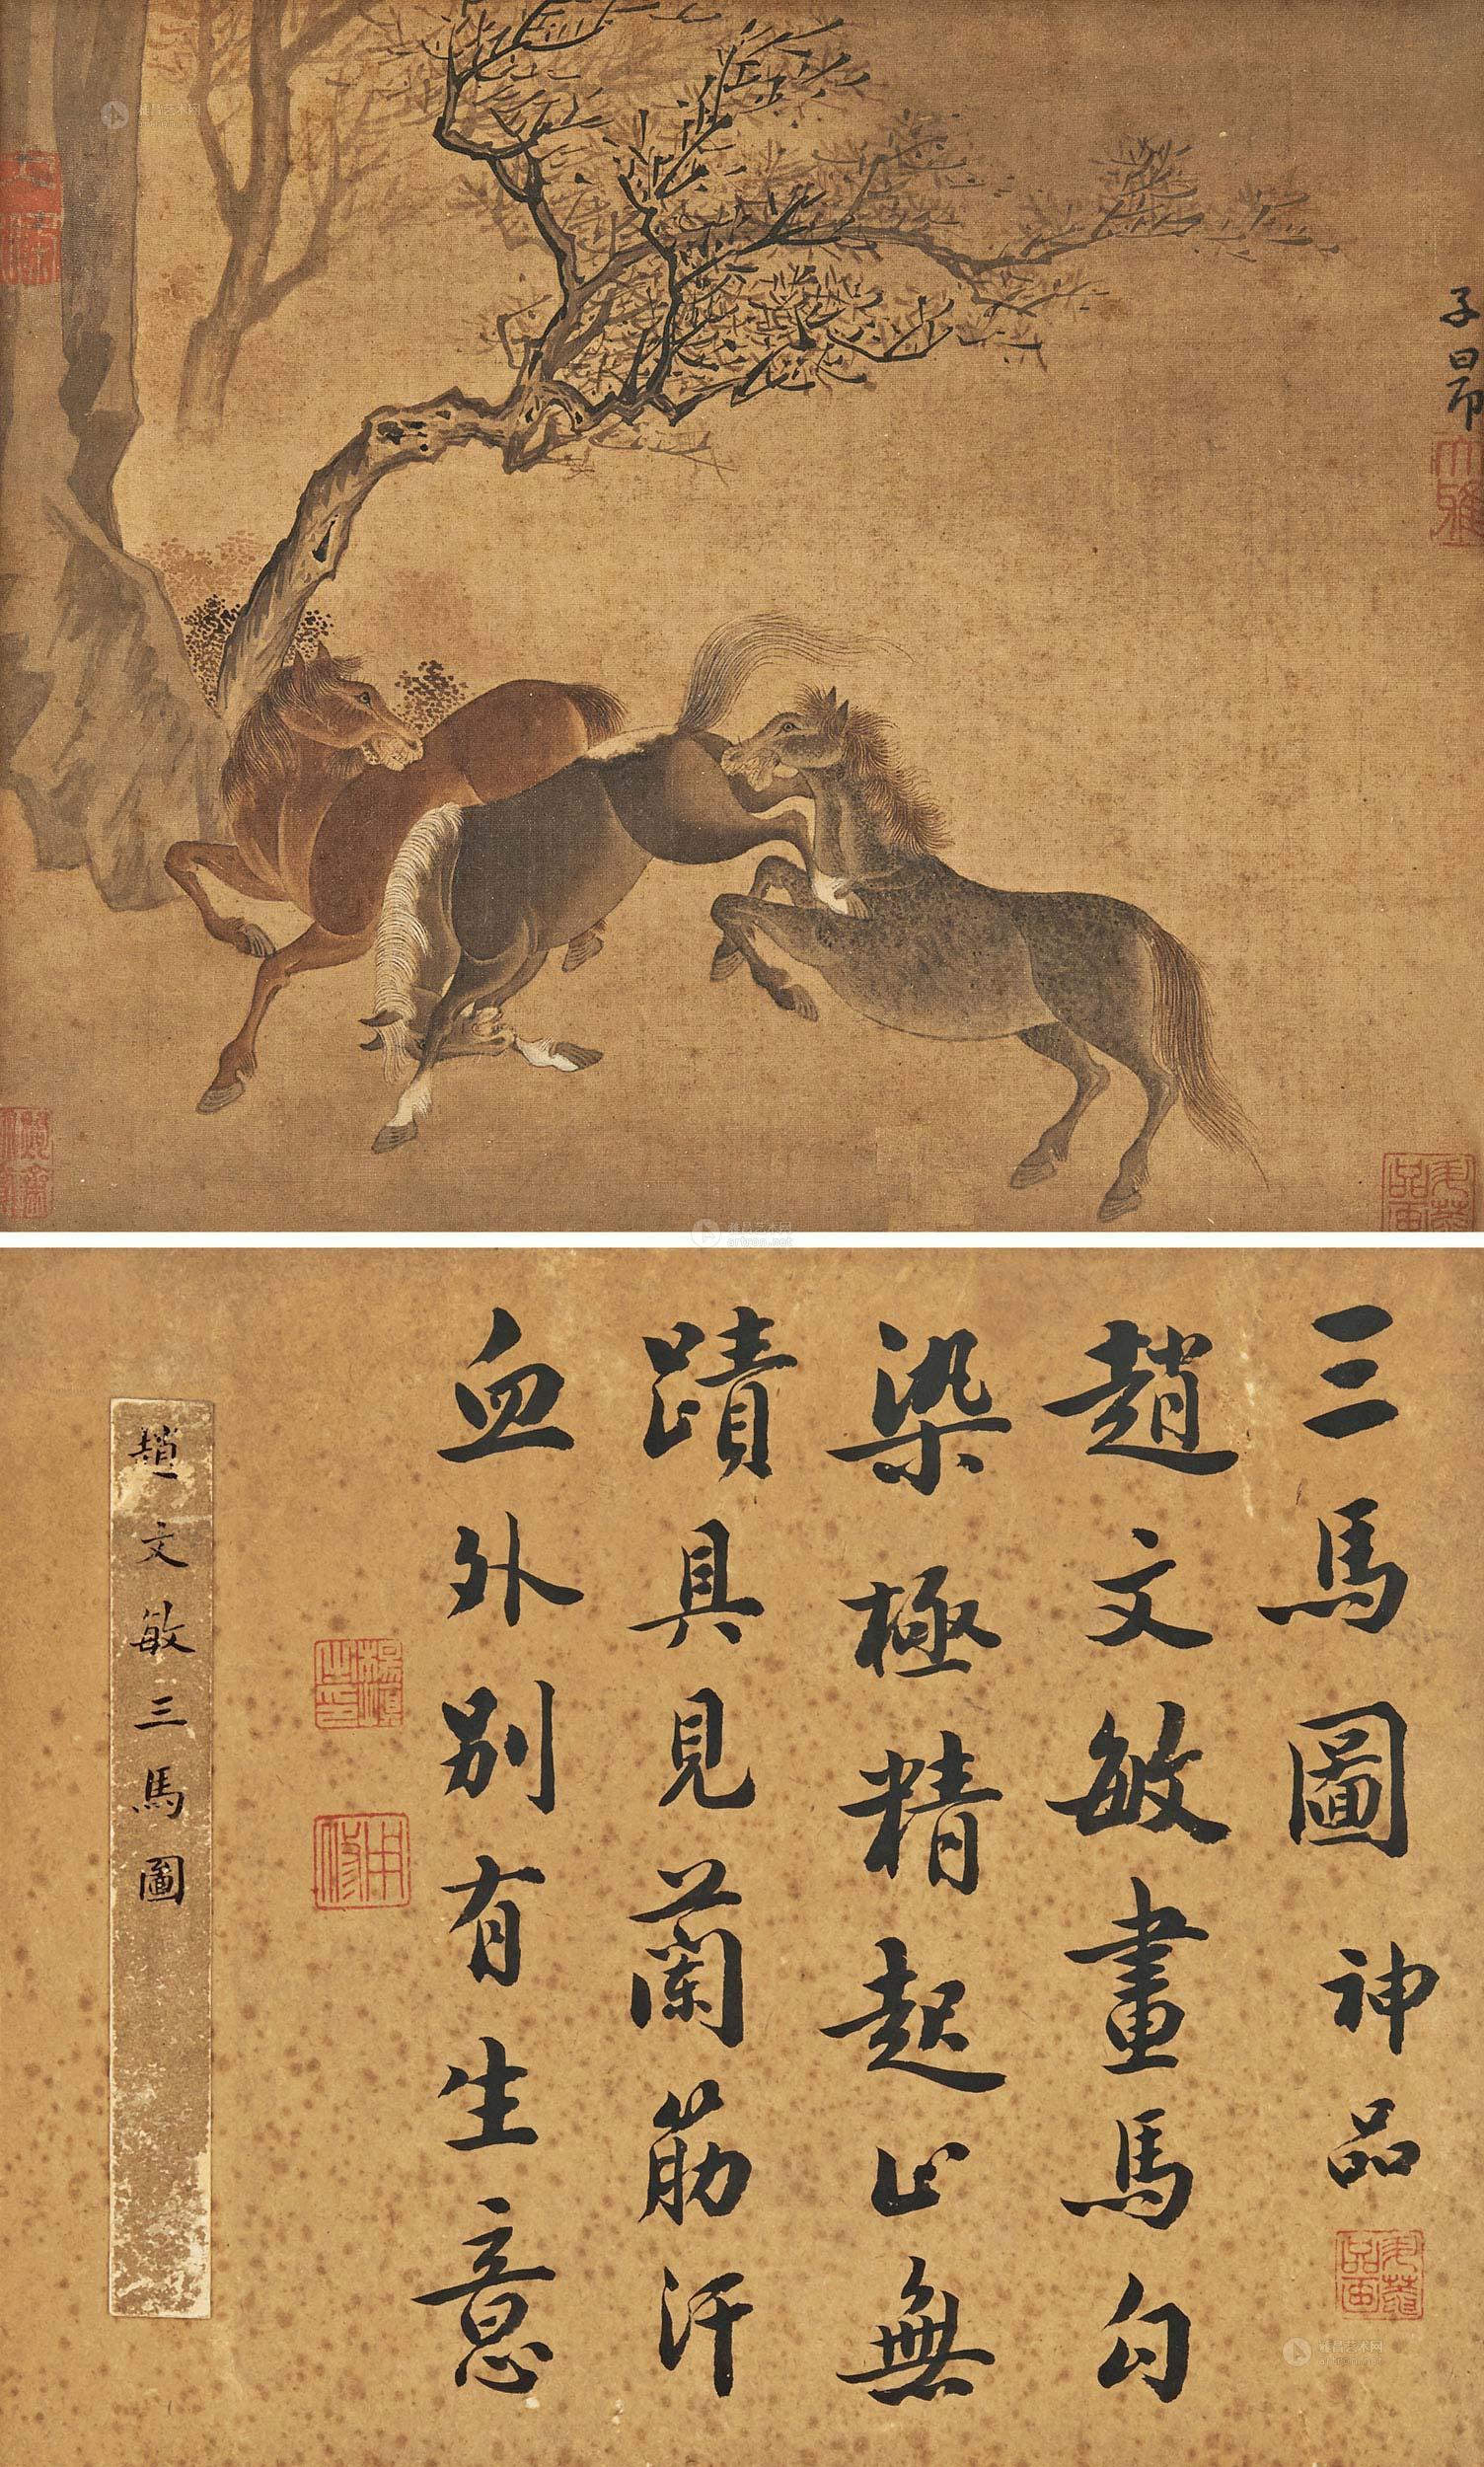 子昂
大雅
三馬圖 神品
趙文敏畫馬勾
染極精起止無
蹟具見蘭筋汗
血外別有生意
趙文敏三馬圖
雅昌艺术网
artron.net